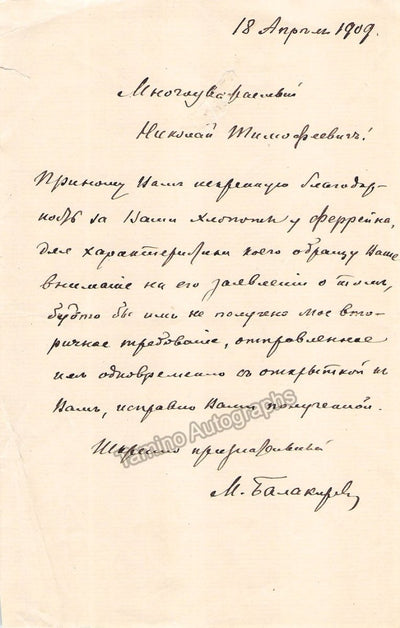 18 Апрѣля 1909.
Многоуважаемый
Николай Тимофеевичъ!
Приношу Вамъ искреннюю благодар-
ность за Ваши хлопоты у Феррейна,
для характеристики коего обращу Ваше
вниманіе на его заявленіе о томъ,
будто бы ими не получено мое вто-
ричное требованіе, отправленное
имъ одновременно съ открыткой къ
Вамъ, исправно Вами полученной.
Искренно признательный
М. Балакирев
Tamino Autographs